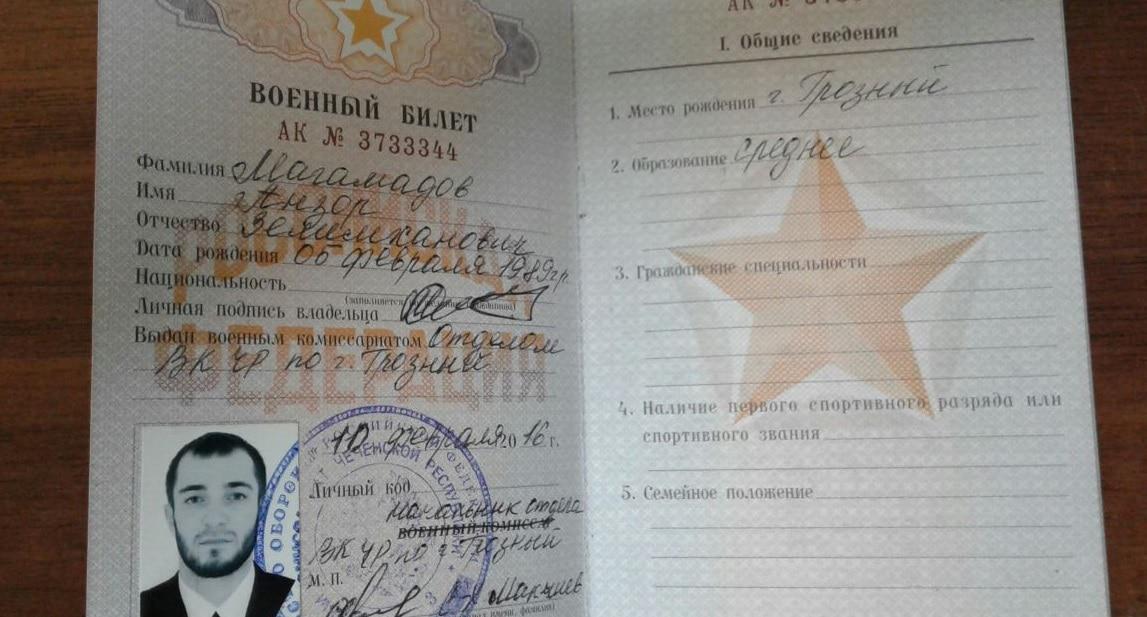 ВОЕННЫЙ БИЛЕТ
АК № 3733344
Фамилия Магамадов
Имя Анзор
Отчество Зелимханович
Дата рождения 05 февраля 1989гр.
Национальность
Личная подпись владельца
Выдан военным комиссариатом Отделом
ВК ЧР по г. Грозный
февраля 2016 г.
Личный код
начальник отдела
ВОЕННЫЙ КОМИССАР
ВК ЧР по г. Грозный
М. П.
АК №
I. Общие сведения
1. Место рождения г. Грозный
2. Образование среднее
3. Гражданские специальности
4. Наличие первого спортивного разряда или
спортивного звания
5. Семейное положение